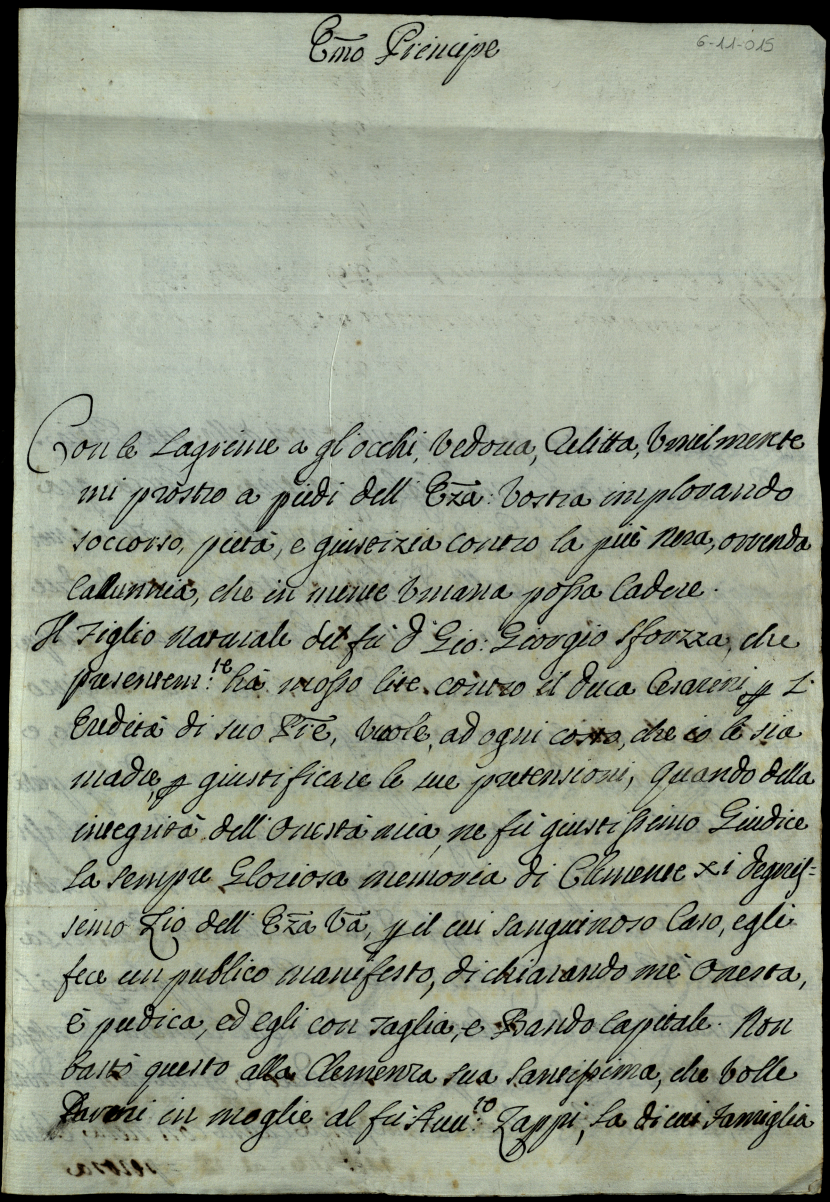 6-11-015
Em̃o Principe
Con le Lagrime a gl'occhi, Vedoua, Relitta, Vmilmente
mi prostro a piedi dell' Ezã: Vostra implorando
soccorso, pietà, e giustizia contro la più Nera, orrenda
Calunnia, che in mente Vmana possa Cadere.
Il Figlio Naturale del fù D: Gio: Giorgio Sforzza, che
presentem:te hà mosso lite contro il Duca Cesarini ꝑ L'
Eredità di suo Prē, Vuole, ad ogni costo, che io le sia
madre, ꝑ giustificare le sue pretensioni, quando della
integrità dell' Onestà mia, ne fù giustissimo Giudice
La sempre Gloriosa memoria di Clemente xi degnis=
simo Zio dell' Ezã Vrã, ꝑ il cui sanguinoso Caso, egli
fece un publico manifesto, dichiarando mè Onesta,
è pudica, ed egli con Taglia, e Bando Capitale. Non
bastò questo alla Clemenza sua Santissima, che Volle
Darmi in moglie al fù Auu:to Zappi, La di cui Famiglia